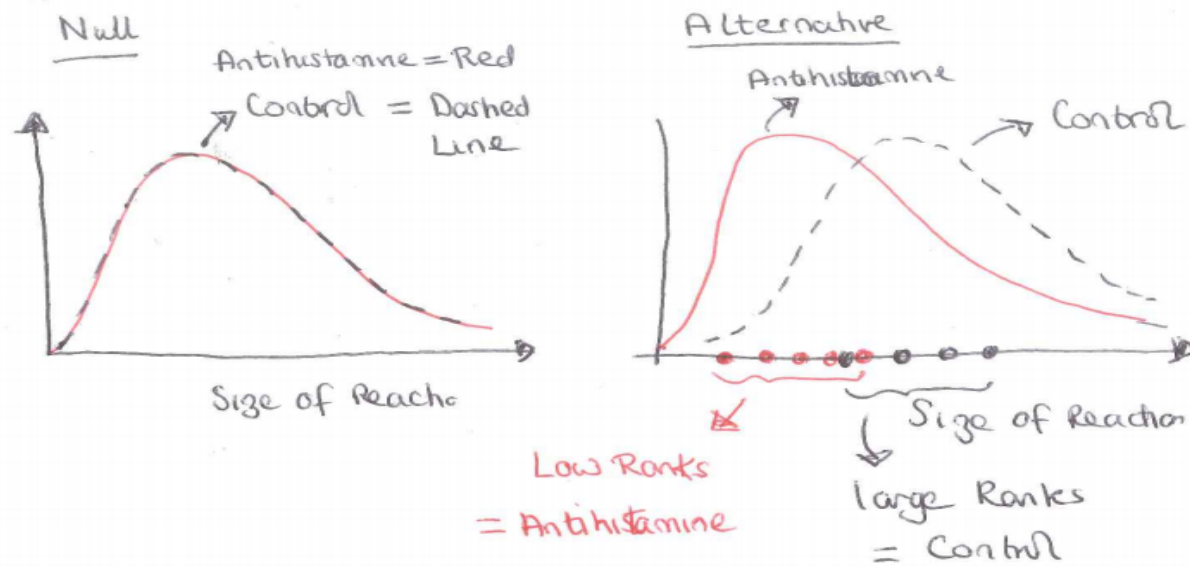 Null
Antihistamine = Red
Control = Dashed
Line
Size of Reactio
Alternative
Antihistamine
Control
Size of Reaction
Low Ranks
= Antihistamine
large Ranks
= Control